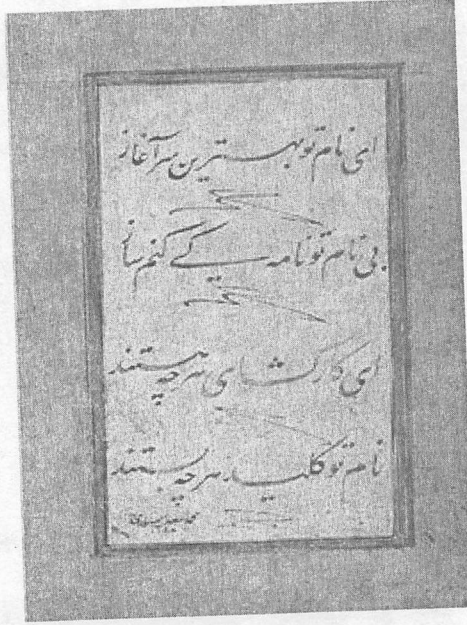 ای نام تو بهترین سرآغاز
بی نام تو نامه کی کنم باز
ای کارگشای هرچه هستند
نام تو کلید هرچه بستند